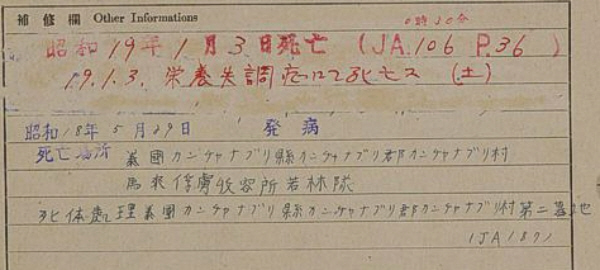 補修欄 Other Informations
0時30分
昭和19年1月3日死亡 (JA.106 P.36)
19.1.3. 栄養失調症ニテ死亡ス (土)
昭和18年5月29日 発病
死亡場所 義國カンチャナブリ縣カンチャナブリ郡カンチャナブリ村
馬来俘虜收容所若林隊
死体處理義國カンチャナブリ縣カンチャナブリ郡カンチャナブリ村第二墓地
1JA1871